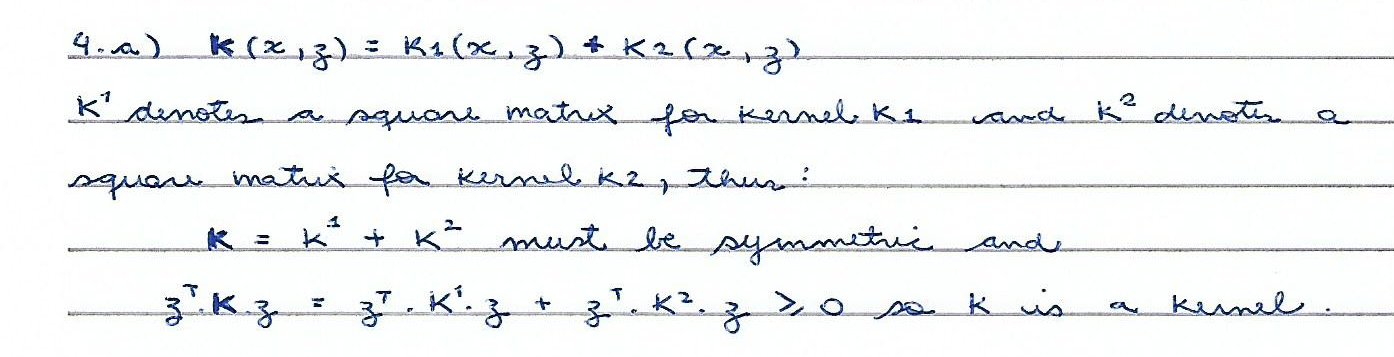 4.a) K(x,z) = K1(x,z) + K2(x,z)
K¹ denotes a square matrix for kernel K1 and K² denotes a
square matrix for kernel K2, thus:
K = K¹ + K² must be symmetric and
zᵀ.K.z = zᵀ.K¹.z + zᵀ.K².z ≥ 0 so K is a kernel.